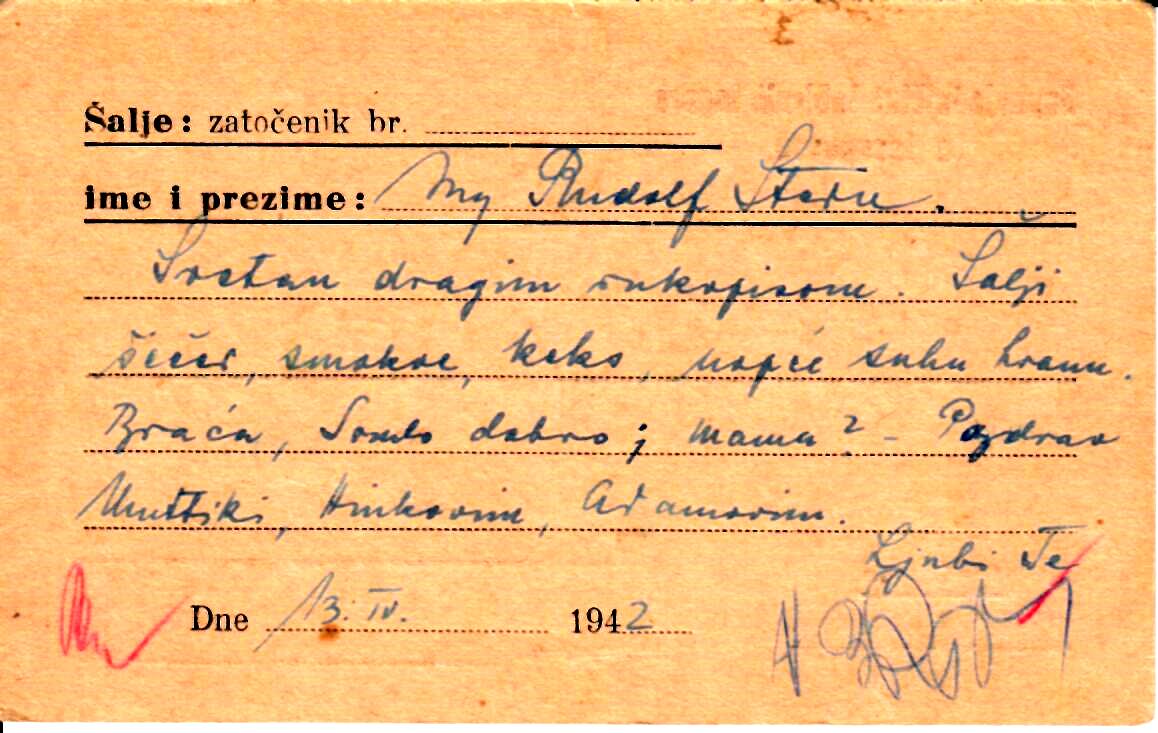 Šalje: zatočenik br.
ime i prezime: Mg Rudolf Stern.
Sretan dragim rukopisom. Šalji
šećer, smokve, keks, uopće suhu hranu.
Braća, Somlo dobro; mama? - Pozdrav
Muttiki, Hinkovim, Adamovim.
Ljubi Te
Dne 13. IV. 1942